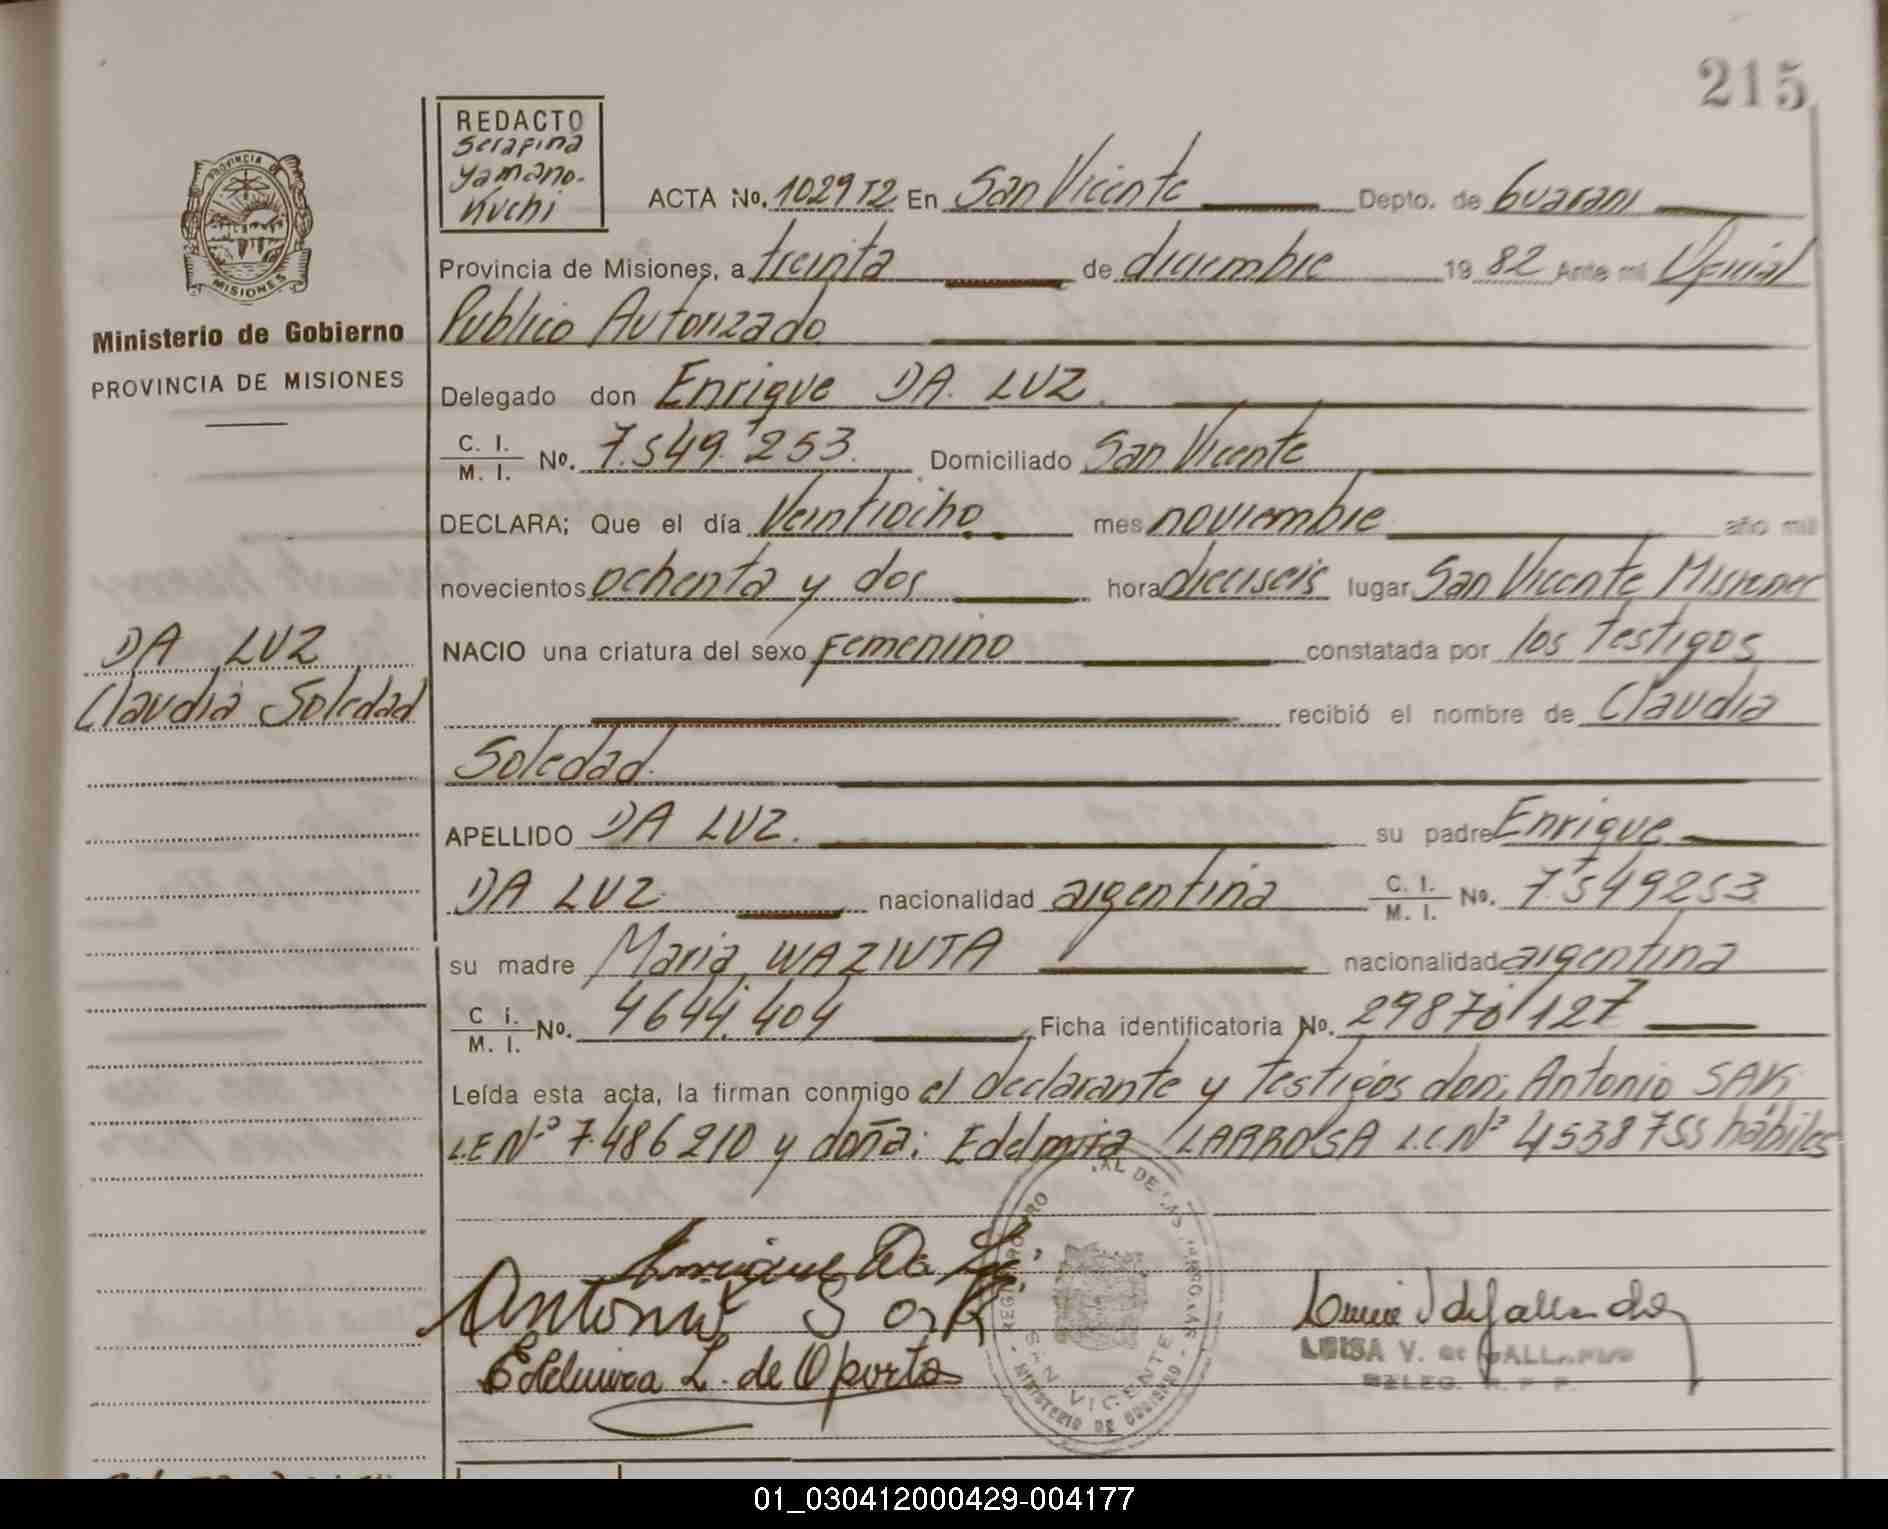 215
REDACTO
Serafina
Yamano-
Kuchi
ACTA No. 1029 T2 En San Vicente Depto. de Guarani
Provincia de Misiones, a treinta de diciembre 19 82 Ante mi Oficial
Publico Autorizado
PROVINCIA DE
MISIONES
Ministerio de Gobierno
PROVINCIA DE MISIONES
Delegado don Enrique DA LUZ.
C. I.
M. I. No. 7.549.253. Domiciliado San Vicente
DECLARA; Que el día Veintiocho mes noviembre año mil
novecientos ochenta y dos hora dieciseis lugar San Vicente Misiones
DA LUZ
Claudia Soledad
NACIO una criatura del sexo femenino constatada por los testigos
recibió el nombre de Claudia
Soledad.
APELLIDO DA LUZ. su padre Enrique
DA LUZ nacionalidad argentina C. I.
M. I. No. 7.549253
su madre Maria WAZIUTA nacionalidad argentina
C I.
M. I. No. 4644.404 Ficha identificatoria No. 127
Leída esta acta, la firman conmigo el declarante y testigos don; Antonio SAK
L.E Nº 7.486210 y doña: Edelmira LARROSA L.C Nº 4538755 hábiles
Enrique Da
Antonio Sak
Edelmira L. de Oporto
SAN VICENTE
MINISTERIO DE GOBIERNO
LUISA V. de GALLARDO
DELEG. R. P. P.
01_030412000429-004177